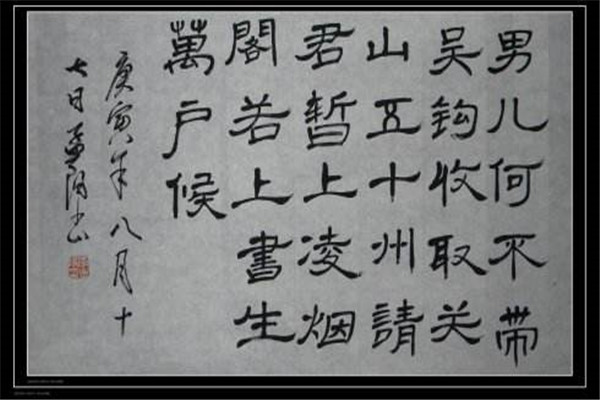 男儿何不帶
吴钩收取关
山五十州請
君暫上凌烟
閣若上書生
萬户候
庚寅年八月十
七日